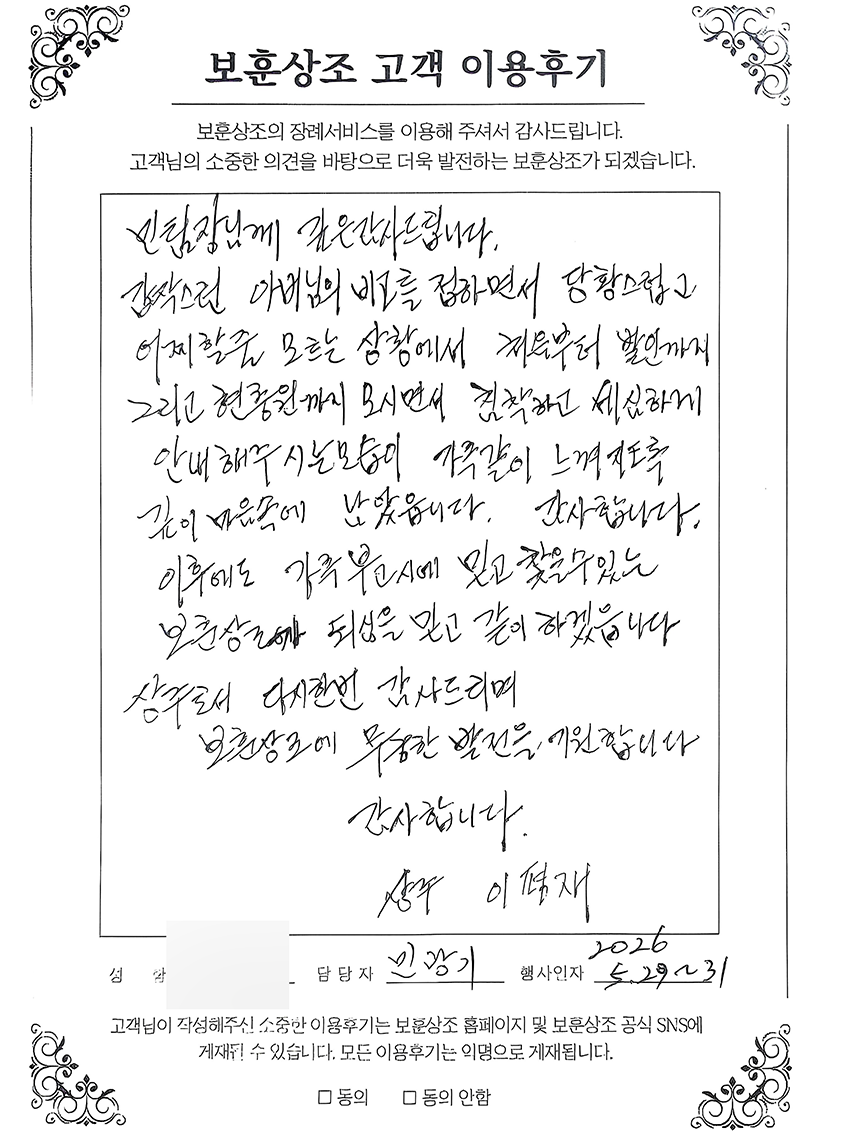 보훈상조 고객 이용후기
보훈상조의 장례서비스를 이용해 주셔서 감사드립니다.
고객님의 소중한 의견을 바탕으로 더욱 발전하는 보훈상조가 되겠습니다.
민팀장님께 깊은감사드립니다.
갑작스런 아버님의 비보를 접하면서 당황스럽고
어찌할줄 모르는 상황에서 처음부터 발인까지
그리고 현충원까지 모시면서 침착하고 세심하게
안내해주시는모습이 가족같이 느껴지도록
깊이 마음속에 남았읍니다. 감사합니다.
이후에도 가족 부고시에 믿고 찾을수있는
보훈상조 되심을 믿고 같이 하겠읍니다
상주로서 다시한번 감사드리며
보훈상조에 무궁한 발전을 기원합니다
감사합니다.
상주 이 재
성 함 담당자 민광기 행사인자 2026 5.29~31
고객님이 작성해주신 소중한 이용후기는 보훈상조 홈페이지 및 보훈상조 공식 SNS에
게재될 수 있습니다. 모든 이용후기는 익명으로 게재됩니다.
□ 동의 □ 동의 안함